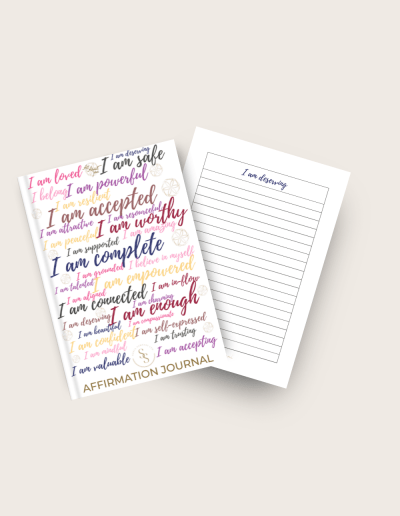 I am deserving
I am loved
I am safe
I belong
I am powerful
I am resilient
I am accepted
I am attractive
I am resourceful
I am worthy
I am peaceful
I am amazing
I am supported
I am complete
I am grounded
I believe in myself
I am talented
I am empowered
I am aligned
I am in-flow
I am connected
I am charming
I am deserving
I am enough
I am beautiful
I am compassionate
I am confident
I am self-expressed
I am trusting
I am mindful
I am valuable
I am accepting
AFFIRMATION JOURNAL
I am deserving